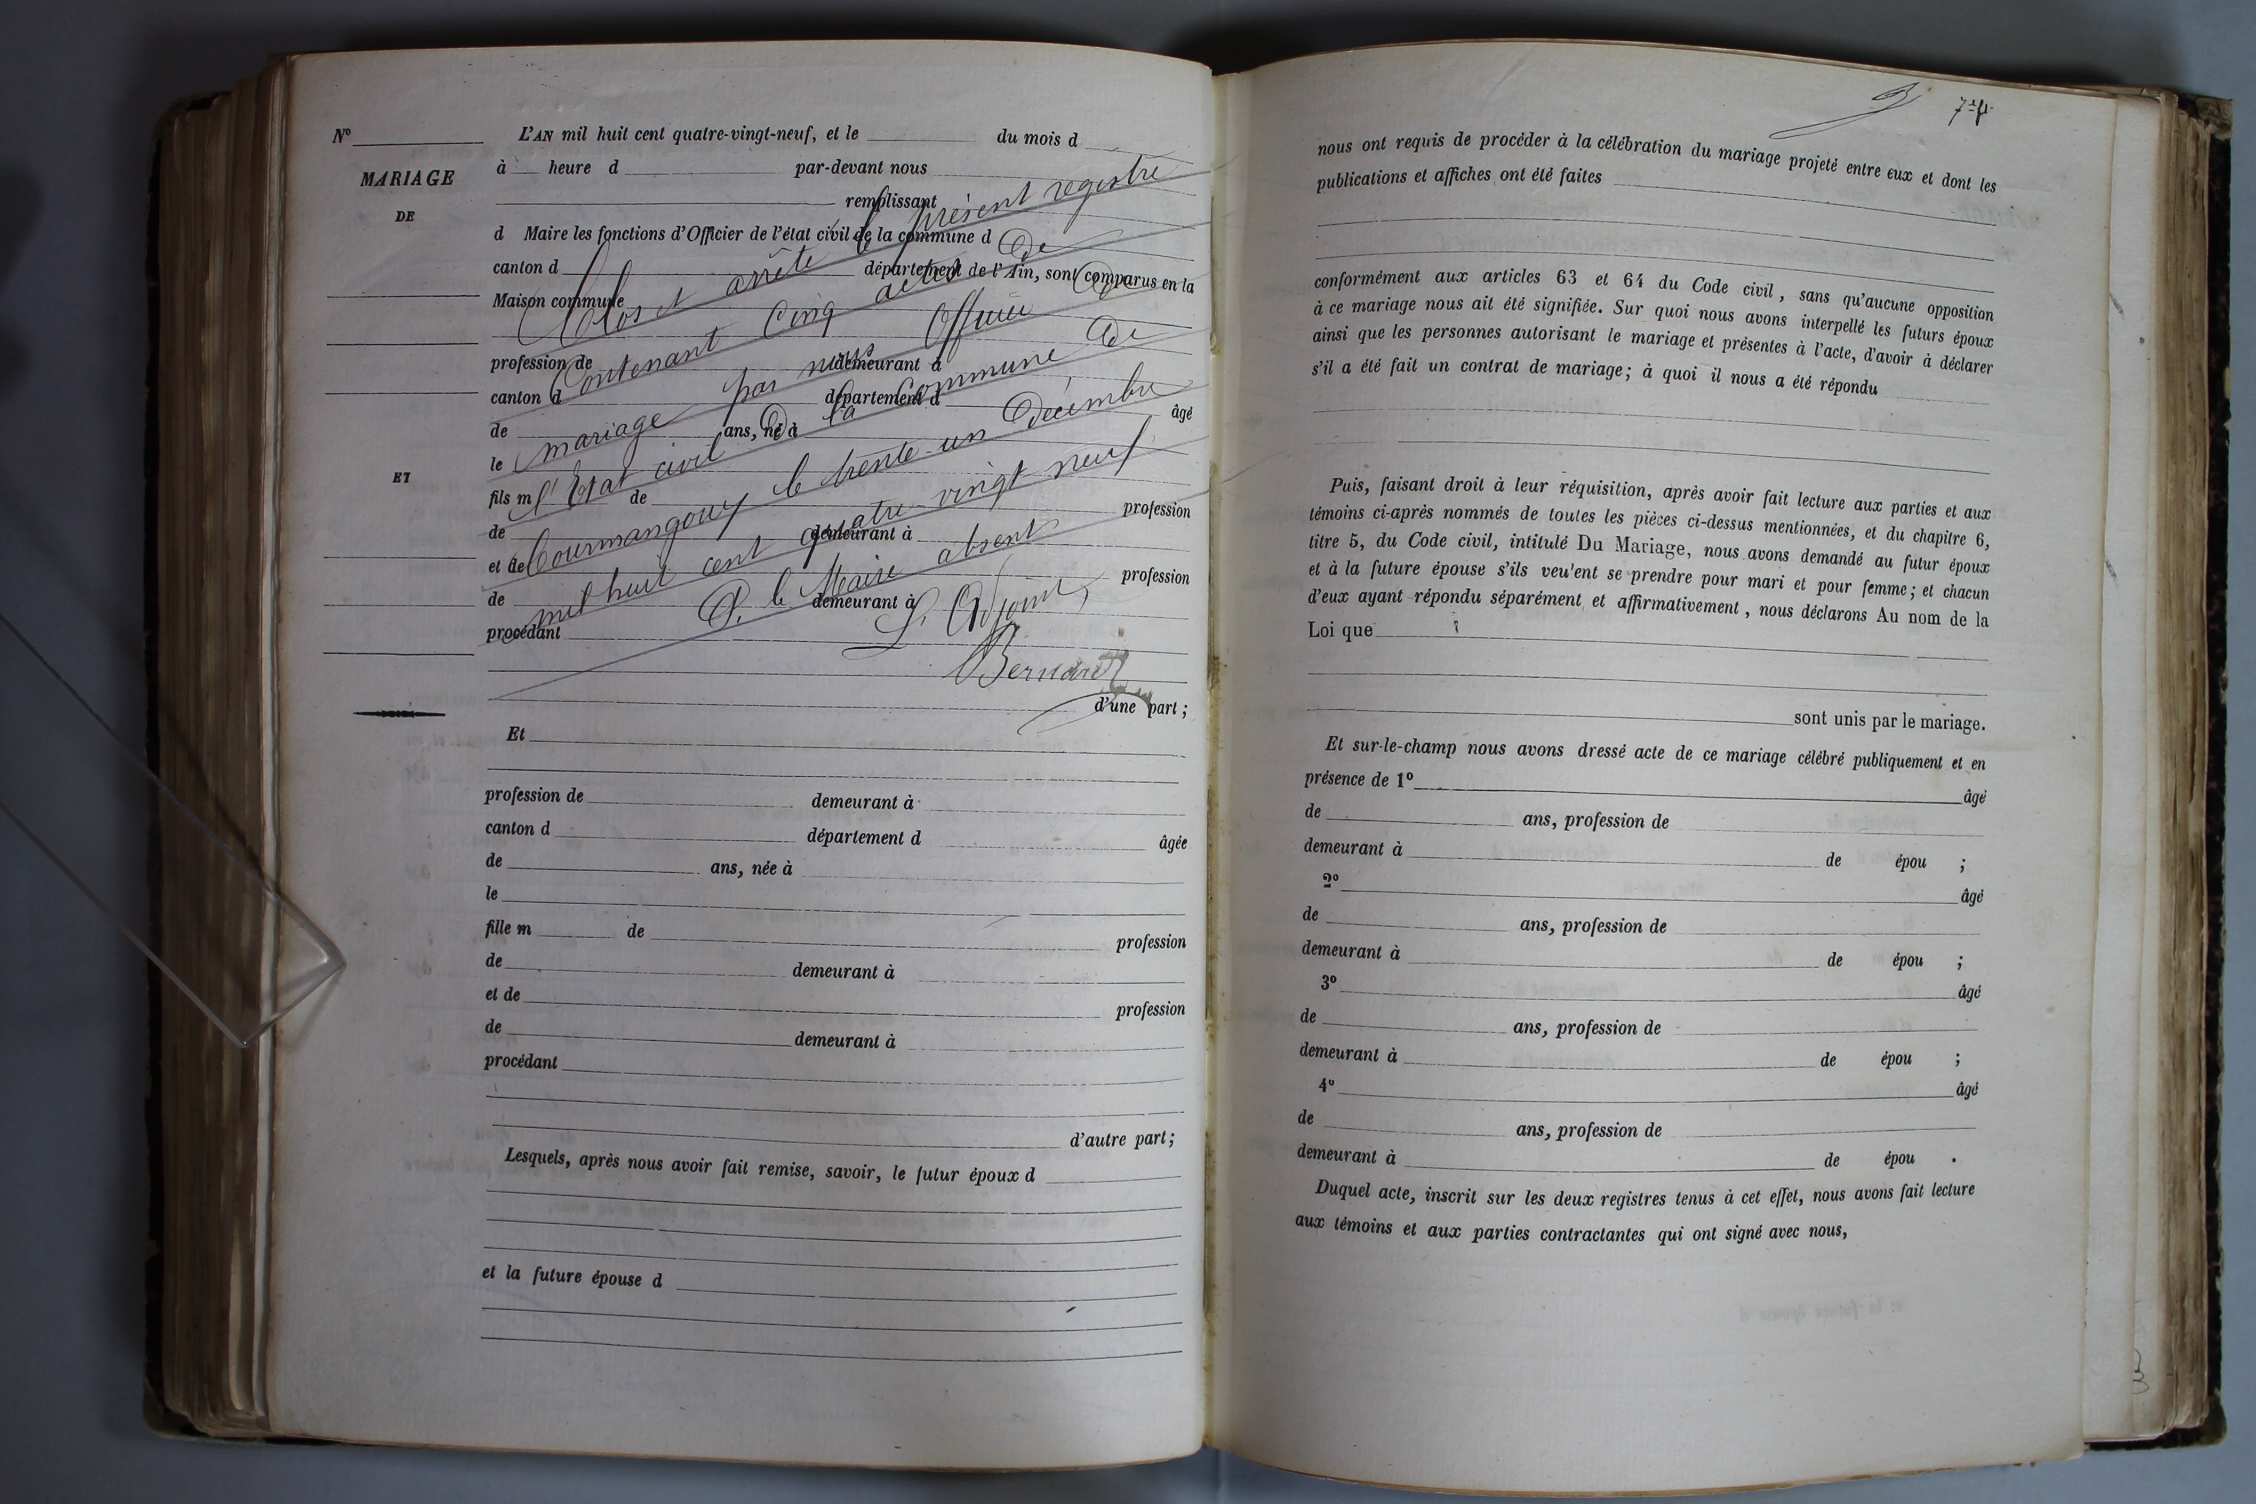 N°
MARIAGE
DE
ET
L'AN mil huit cent quatre-vingt-neuf, et le du mois d
à heure d par-devant nous
remplissant
d Maire les fonctions d'Officier de l'état civil de la commune d
canton d département de l'Ain, sont comparus en la
Maison commune
profession de demeurant à
canton d département d âgé
de ans, né à
le
fils m de profession
de demeurant à
et de profession
de demeurant à
procédant
d'une part ;
Clos et arrêté le présent registre
Contenant Cinq actes de
mariage par nous Officier De
l'Etat civil De la Commune De
Courmangoux le trente-un Décembre
mil huit cent quatre-vingt-neuf
P. le Maire absent
L'Adjoint,
Et
profession de demeurant à
canton d département d âgée
de ans, née à
le
fille m de profession
de demeurant à
et de profession
de demeurant à
procédant
d'autre part ;
Lesquels, après nous avoir fait remise, savoir, le futur époux d
et la future épouse d
nous ont requis de procéder à la célébration du mariage projeté entre eux et dont les
publications et affiches ont été faites
conformément aux articles 63 et 64 du Code civil, sans qu'aucune opposition
à ce mariage nous ait été signifiée. Sur quoi nous avons interpellé les futurs époux
ainsi que les personnes autorisant le mariage et présentes à l'acte, d'avoir à déclarer
s'il a été fait un contrat de mariage ; à quoi il nous a été répondu
Puis, faisant droit à leur réquisition, après avoir fait lecture aux parties et aux
témoins ci-après nommés de toutes les pièces ci-dessus mentionnées, et du chapitre 6,
titre 5, du Code civil, intitulé Du Mariage, nous avons demandé au futur époux
et à la future épouse s'ils veu'ent se prendre pour mari et pour femme ; et chacun
d'eux ayant répondu séparément et affirmativement, nous déclarons Au nom de la
Loi que
sont unis par le mariage.
Et sur-le-champ nous avons dressé acte de ce mariage célébré publiquement et en
présence de 1° âgé
de ans, profession de
demeurant à de épou ;
2° âgé
de ans, profession de
demeurant à de épou ;
3° âgé
de ans, profession de
demeurant à de épou ;
4° âgé
de ans, profession de
demeurant à de épou .
Duquel acte, inscrit sur les deux registres tenus à cet effet, nous avons fait lecture
aux témoins et aux parties contractantes qui ont signé avec nous,